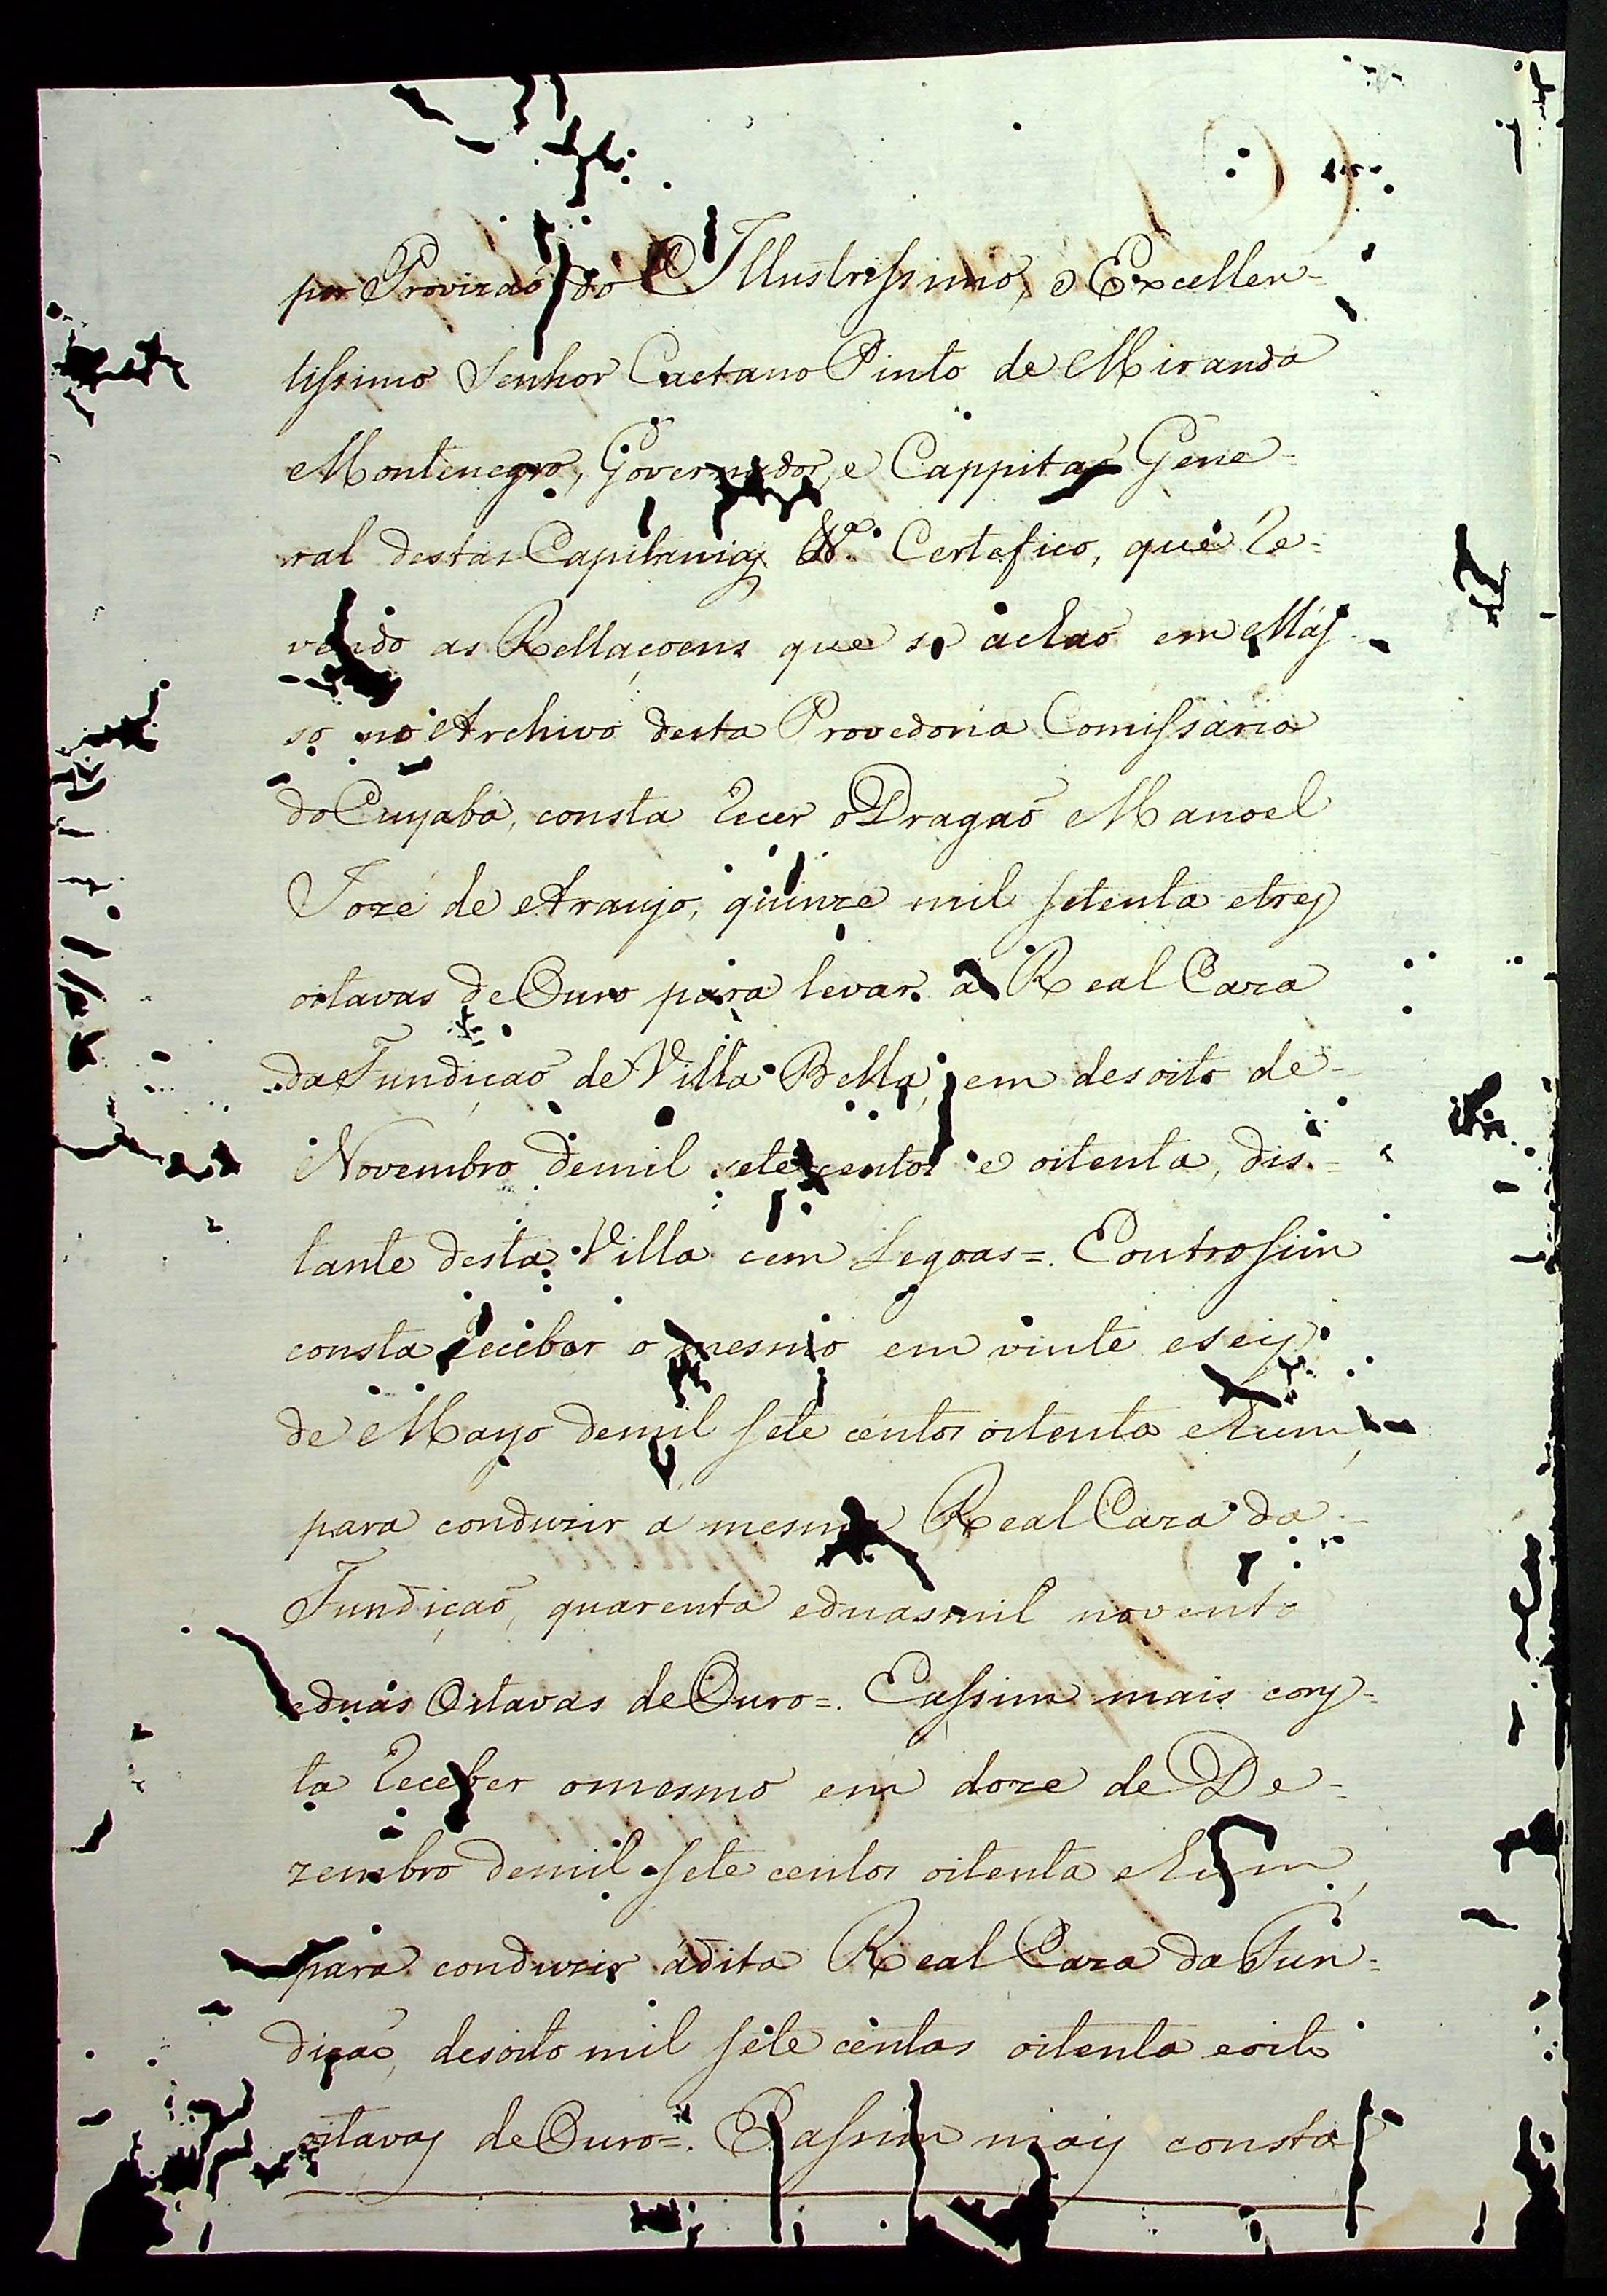 por Provizaõ do Illustrissimo, e Excellen=
tissimo Senhor Caetano Pinto de Miranda
Montenegro, Governador, e Cappitaõ Gene=
ral destas Capitanias &ª. Certefico, que re=
vendo as Rellaçoens que se achaõ em Mas=
so no Archivo desta Provedoria Comissaria
do Cuyaba, consta recer o Dragaõ Manoel
Jozé de Araujo, quinze mil setenta e tres
oitavas de Ouro para levar a Real Caza
da Fundiçaõ de Villa Bella, em desoito de=
Novembro de mil sete centos e oitenta, dis=
tante desta Villa cem Legoas=. E outro sim
consta receber o mesmo em vinte e seis
de Mayo de mil sete centos oitenta e hum,
para conduzir á mesma Real Caza da=
Fundiçaõ, quarenta e duas mil noventa
e duas Oitavas de Ouro=. E assim mais cons=
ta receber o mesmo em doze de De=
zembro de mil sete centos oitenta e hum,
para conduzir á dita Real Caza da Fun=
diçaõ, desoito mil sete centas oitenta e oito
oitavas de Ouro=. E assim mais consta